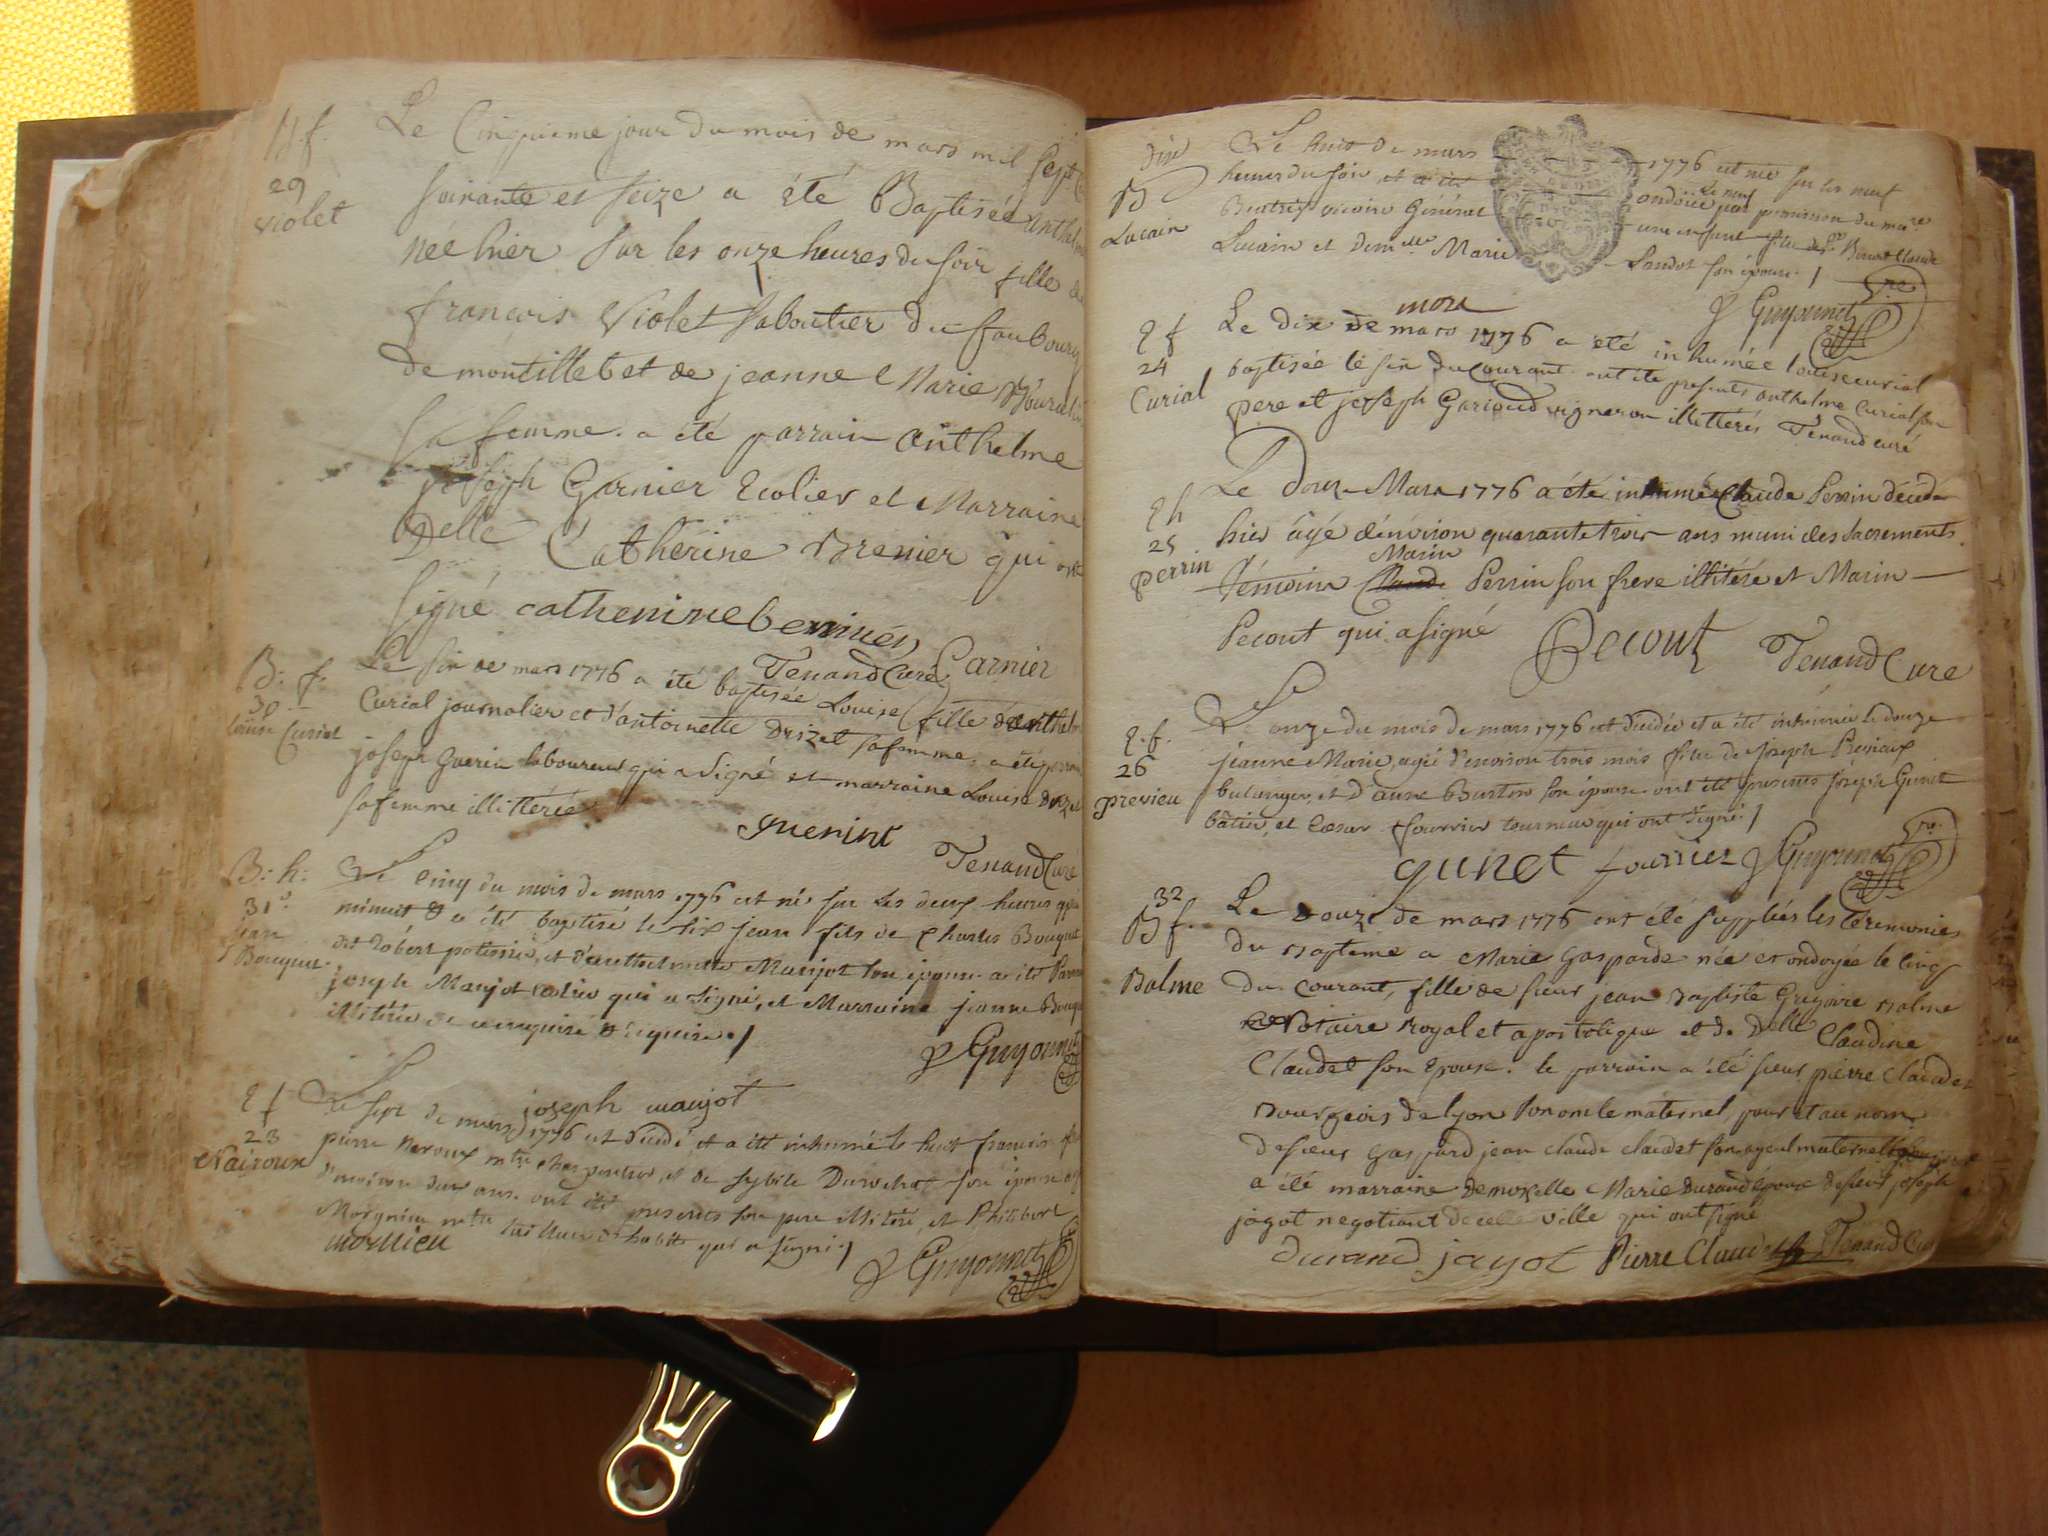 B. f.
29
violet
Le Cinquieme jour du mois de mars mil sept
soixante et seize a été Baptisée anthelm
née hier sur les onze heures du soir fille de
francois Violet saboutier du faubourg
de montillet et de jeanne Marie
sa femme. a été parrain anthelme
joseph Garnier Ecolier et Marraine
Delle Catherine Brenier qui ont
signé catherinne berniner
Tenand Curé Garnier
B: f.
30
Louise Curial
Le six de mars 1776 a été baptisée Louise fille d'anthelm
Curial journalier et d'antoinette Drizet sa femme. a été parrain
joseph Guerin laboureur qui a signé et marraine Louise Drizet
sa femme illittérée
guenint
Tenand Curé
B: h:
31e
jean
Bouquet
Le cinq du mois de mars 1776 est né sur les deux heures après
minuit & a été baptisé le six jean fils de Charles Bouquet
dit Dobert potissier, et Maujot son épouse a été Parrain
joseph Maujot qui a signé, et Marraine jeanne Bouquet
illitérée de ce enquise & requise ./
Guyonnet
joseph maujot
E f
23
Nairoux
Le sept de mars 1776 est décédé, et a été inhumé le huit francois fils
pierre Neroux mtre charpentier, et de Sybile Durochat son épouse agé
d'environ deux ans. ont été presents son pere illitéré, et Philibert
Morgnieu mtre tailleur d'habits qui a signé ./
mornieu
Guyonnet
B
Lucain
Le huit de mars 1776 est née sur les neuf
heures du soir, et a été ondoiée le neuf par permission du mare
Beatrix vicaire Général une enfant fille de Sr Benoit Claude
Lucain et demlle Marie Landoz son épouse ./
Guyonnet vre
E f
24
Curial
mars
Le dix de mars 1776 a été inhumée louise curial
baptisée le six du courant. ont été presents anthelme Curial son
pere et joseph Garioud vigneron illittérés Tenand curé
E h
25
perrin
Le Douze Mars 1776 a été inhumé Claude Perrin décédé
hier âgé d'environ quarante trois ans muni des Sacrements.
Témoins Claude Marin Perrin son frere illitéré et Marin
Pecout qui a signé Pecout Tenand Cure
E. f.
26
previeu
Le onze du mois de mars 1776 est décédée et a été inhumée le douze
jeanne Marie, agée d'environ trois mois fille de joseph Previeux
bulanger, et d'anne Burtin son épouse. ont été presents joseph Gunet
bâtier, et Cesar fourrier tourneur qui ont signé ./
gunet fourrier Guyonnet vre
32
B f.
Balme
Le Douze de mars 1776 ont été suppliés les Ceremonies
du Bapteme a Marie Gasparde née et ondoyée le cinq
du courant, fille de sieur jean Baptiste Gregoire Balme
Notaire Royal et apostolique et de Delle Claudine
Claudet son Epouse. le parrain a été sieur pierre Claudet
Bourgeois de lyon son oncle maternel, pour et au nom
de sieur Gaspard jean claude claudet son ayeul maternel
a été marraine Demoiselle Marie Durand épouse de sieur joseph
jagot negotiant de cette ville qui ont signé
durand jagot Pierre Claudet Tenand Curé